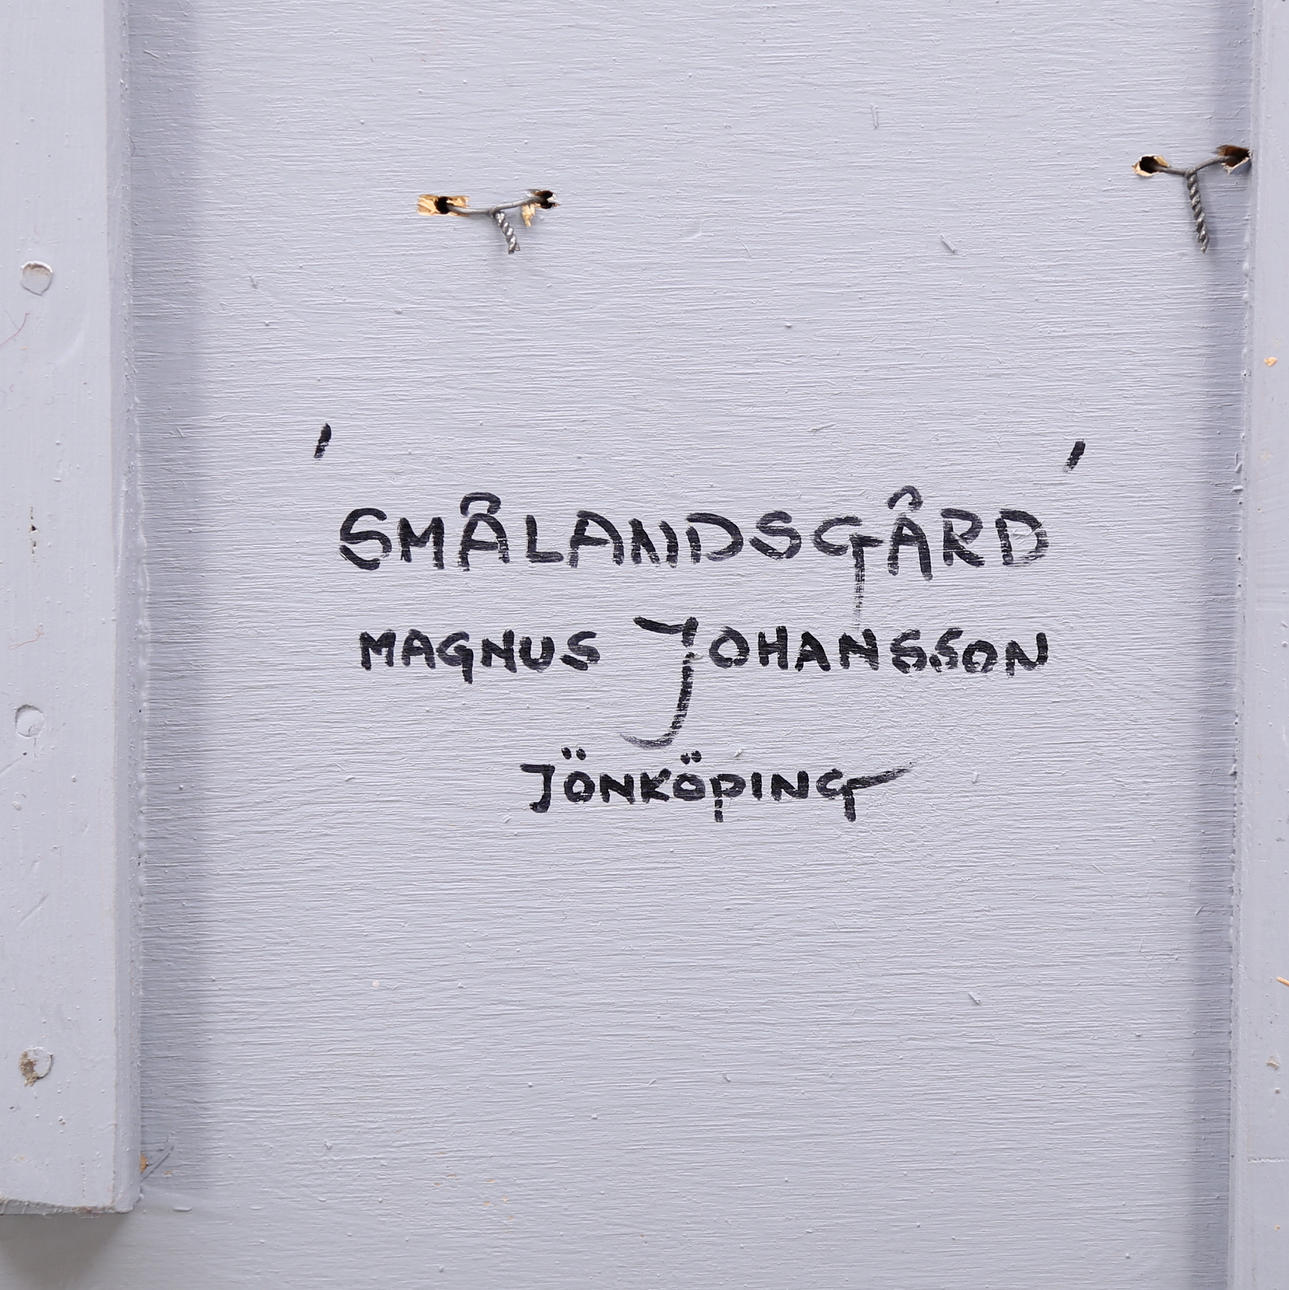 'SMÅLANDSGÅRD'
MAGNUS JOHANSSON
JÖNKÖPING